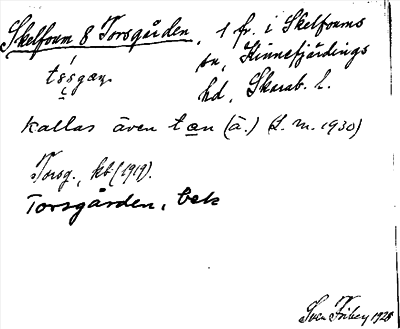 Skelfoum 8 Torsgården, 1 fr. i Skelfoums
sn, Kinnefjärdings
hd, Skarab. l.
kallas även tan (ä.) (L. m. 1930)
Torsg., kb (1919).
Torsgården, bek
Sven Friberg 1928